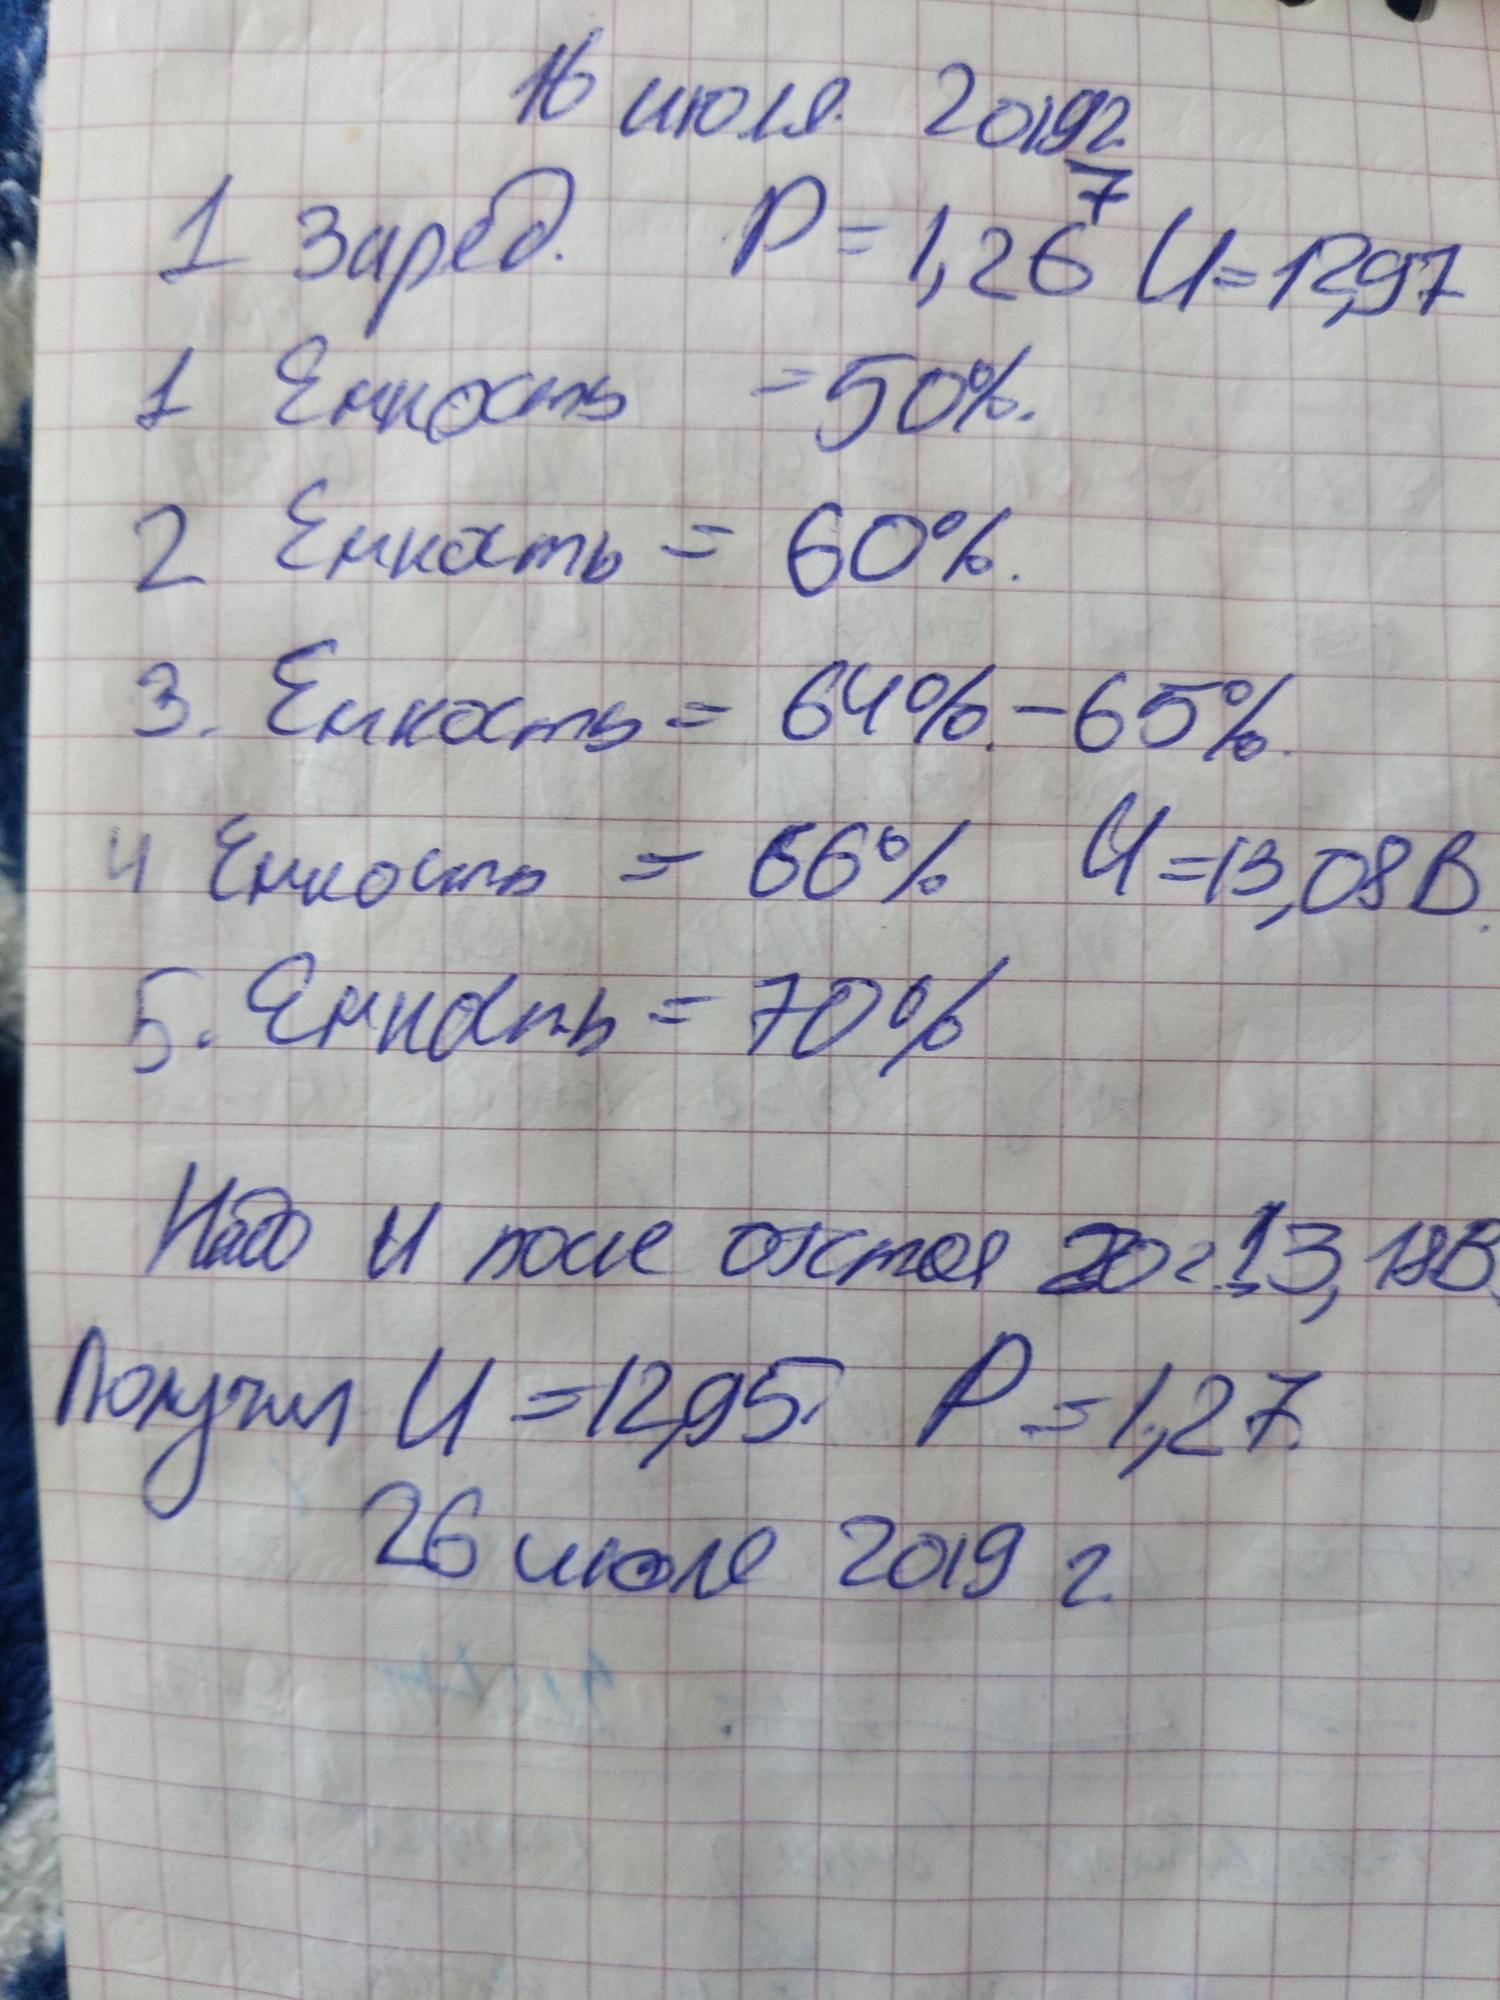 16 июля 2019г.
1 Заряд. P = 1,267 U = 12,97
1 Емкость = 50%.
2 Емкость = 60%.
3. Емкость = 64% - 65%.
4 Емкость = 66% U = 13,08В.
5. Емкость = 70%
Надо U после отстоя 13,18В.
Получил U = 12,95. P = 1,27.
26 июля 2019 г.